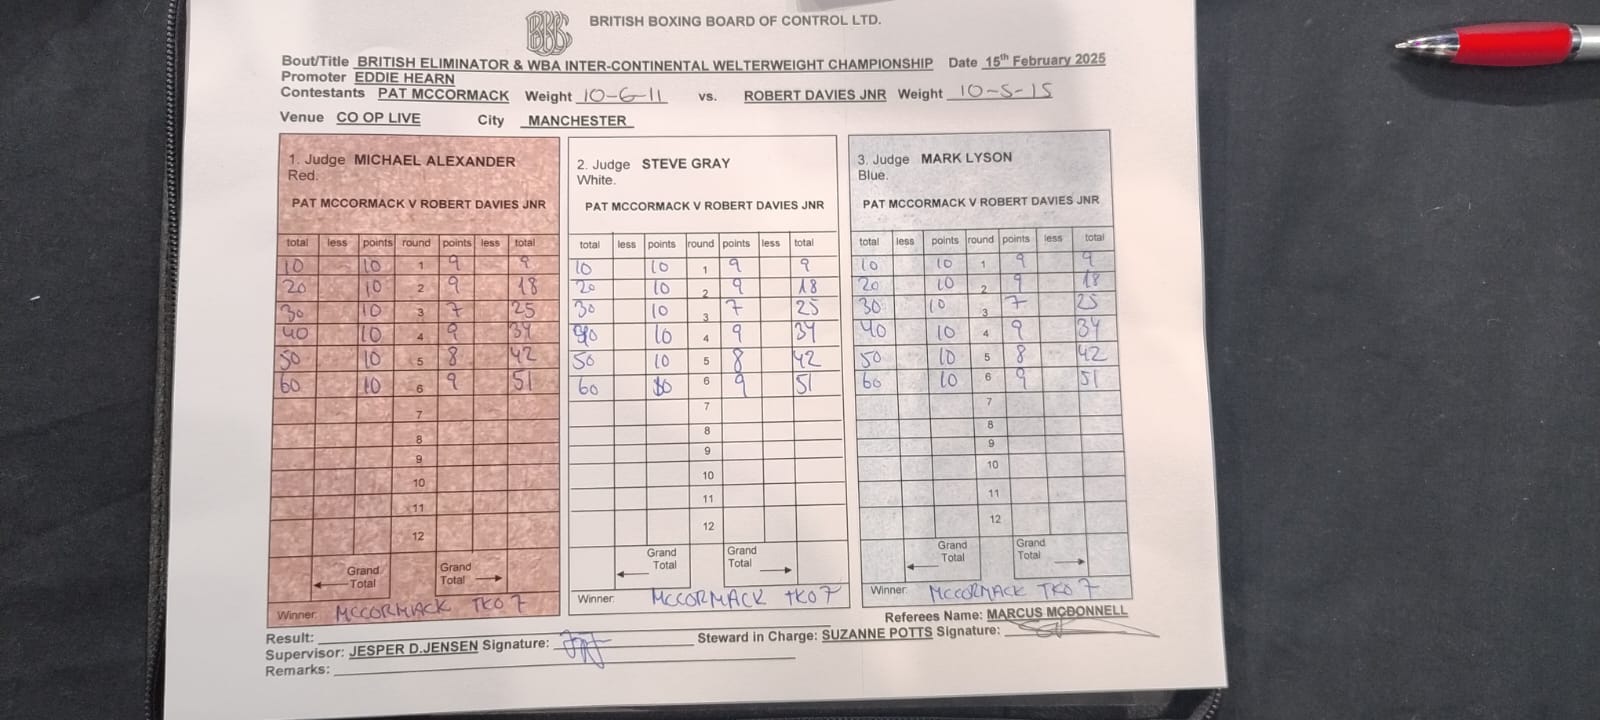 BBBC
BRITISH BOXING BOARD OF CONTROL LTD.
Bout/Title BRITISH ELIMINATOR & WBA INTER-CONTINENTAL WELTERWEIGHT CHAMPIONSHIP Date 15th February 2025
Promoter EDDIE HEARN
Contestants PAT MCCORMACK Weight 10-6-11 vs. ROBERT DAVIES JNR Weight 10-5-15
Venue CO OP LIVE City MANCHESTER
1. Judge MICHAEL ALEXANDER
Red.
PAT MCCORMACK V ROBERT DAVIES JNR
total less points round points less total
10 10 1 9 9
20 10 2 9 18
30 10 3 7 25
40 10 4 9 34
50 10 5 8 42
60 10 6 9 51
7
8
9
10
11
12
Grand Total
Grand Total
Winner: MCCORMACK TKO 7
2. Judge STEVE GRAY
White.
PAT MCCORMACK V ROBERT DAVIES JNR
total less points round points less total
10 10 1 9 9
20 10 2 9 18
30 10 3 7 25
40 10 4 9 34
50 10 5 8 42
60 10 6 9 51
7
8
9
10
11
12
Grand Total
Grand Total
Winner: MCCORMACK TKO 7
3. Judge MARK LYSON
Blue.
PAT MCCORMACK V ROBERT DAVIES JNR
total less points round points less total
10 10 1 9 9
20 10 2 9 18
30 10 3 7 25
40 10 4 9 34
50 10 5 8 42
60 10 6 9 51
7
8
9
10
11
12
Grand Total
Grand Total
Winner: MCCORMACK TKO 7
Referees Name: MARCUS MCDONNELL
Result:
Supervisor: JESPER D.JENSEN Signature: Steward in Charge: SUZANNE POTTS Signature:
Remarks: